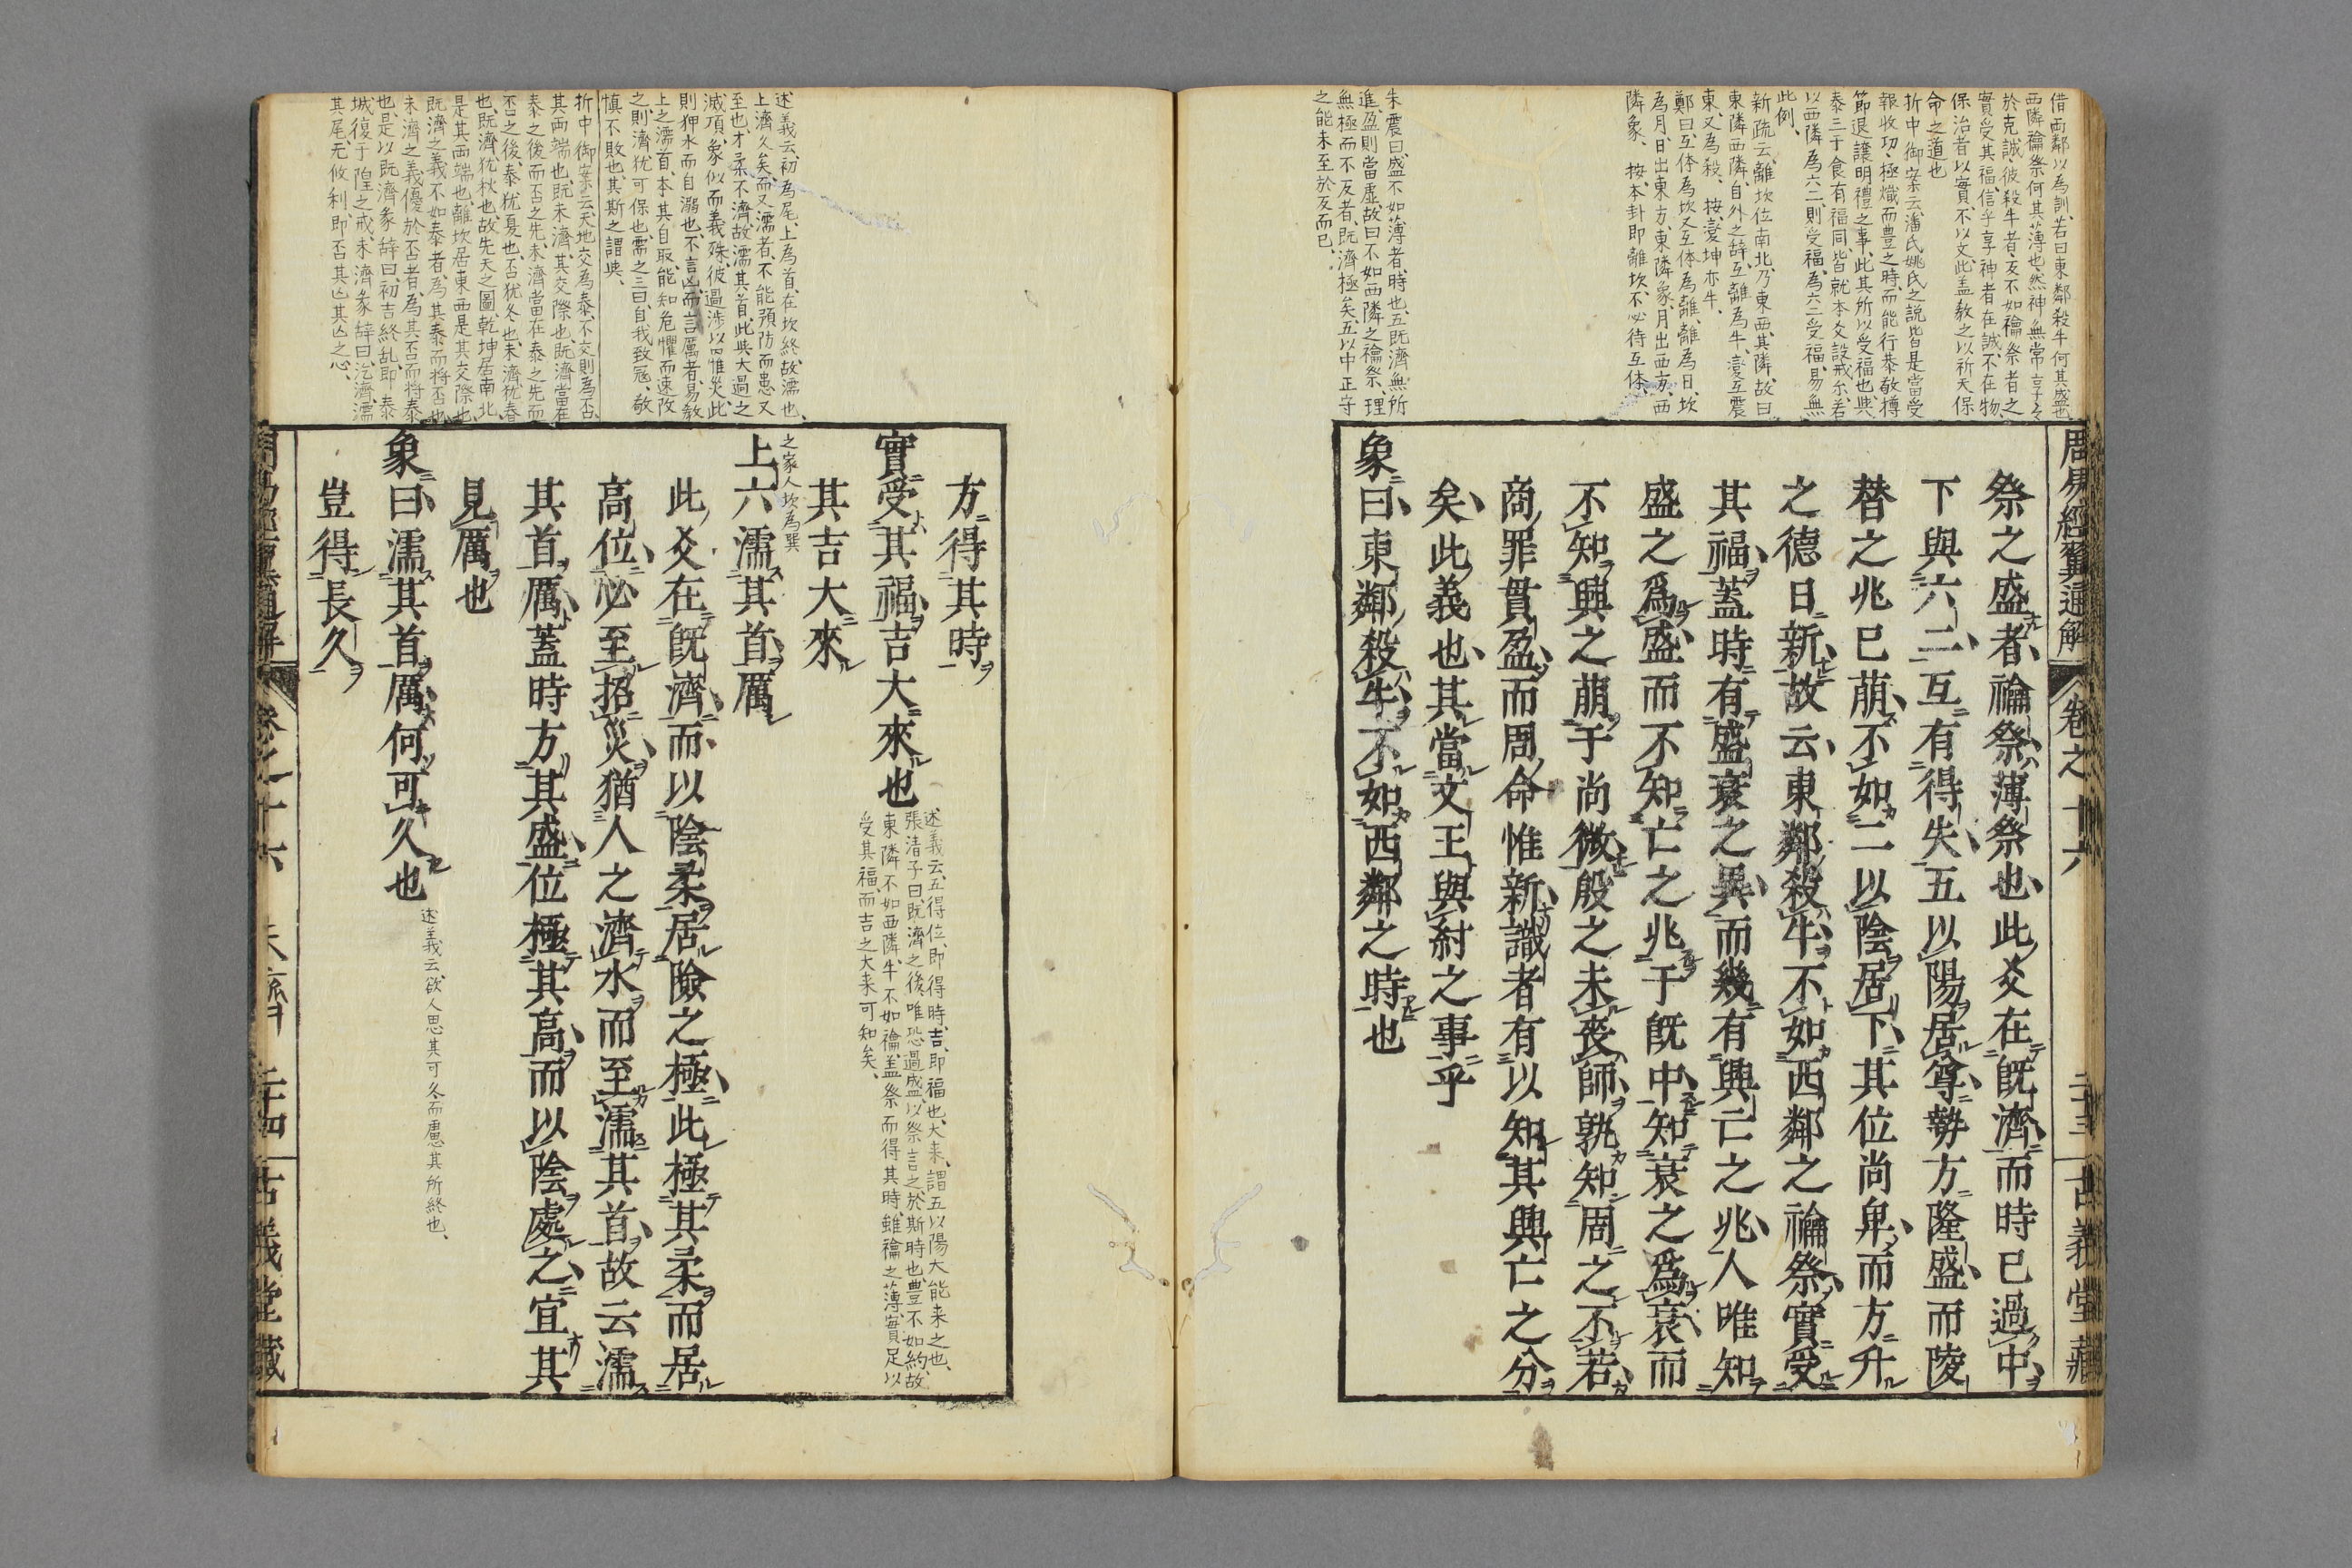 周易經翼通解 卷之十六 二十三 古義堂藏
借両鄰以為訓、若曰東鄰殺牛何其盛也
西隣禴祭何其薄也、然神無常享、享
於克誠、彼殺牛者、反不如禴祭者之
實受其福、信乎享神者在誠、不在物、
保治者以實、不以文、此盖教之以祈天保
命之道也
折中御案云、潘氏姚氏之説皆是、當受
報收功、極熾而豊之時、而能行恭敬撙
節退讓明禮之事、此其所以受福也、與
泰三于食有福同、皆就本爻設戒尓、若
以西隣為六二、則受福、為六二受福、易無
此例、
新疏云、離坎位南北、乃東西、其隣、故曰
東隣西隣、自外之辞、互離為牛、変互震
東、又為殺、 按、変坤亦牛、
鄭曰、互体為坎、又互体為離、離為日、坎
為月、日出東方、東隣象、月出西方、西
隣象、 按、本卦即離坎、不必待互体、
朱震曰、盛不如薄者、時也、五既濟無所
進、盈則當虚、故曰不如西隣之禴祭、理
無極而不反者、既濟極矣、五以中正守
之、能未至於反而已、
祭之盛者、禴祭、薄祭也、此爻在既濟、而時已過中、
下與六二、互有得失、五以陽居尊、勢方隆盛、而陵
替之兆已萠、不如二以陰居下、其位尚卑、而方升
之德日新、故云、東鄰殺牛、不如西鄰之禴祭、實受
其福、蓋時有盛衰之異、而幾有興亡之兆、人唯知
盛之爲盛、而不知亡之兆于既中、知衰之爲衰、而
不知興之萠于尚微、殷之未喪師、孰知周之不若、
商罪貫盈、而周命惟新、識者有以知其興亡之分
矣、此義也、其當文王與紂之事乎
象曰、東鄰殺牛、不如西鄰之時也
方得其時
實受其福、吉大來也
述義云、五得位、即得時、吉、即福也、大来、謂五以陽大能来之也、
張清子曰、既濟之後、唯恐過盛、以祭言之、於斯時也、豊不如約、故
東隣不如西隣、牛不如禴、盖祭而得其時、雖禴之薄、實足以
受其福、而吉之大来可知矣、
其吉大來
之家人坎為巽
上六濡其首、厲
此爻在既濟、而以陰柔居險之極、此極其柔而居
高位、必至招災、猶人之濟水而至濡其首、故云濡
其首厲、蓋時方其盛、位極其高、而以陰處之、宜其
見厲也
象曰、濡其首厲、何可久也
述義云、欲人思其可久而慮其所終也、
豈得長久
述義云、初為尾、上為首、在坎終、故濡也、
上濟久矣、而又濡者、不能預防而患又
至也、才柔不濟、故濡其首、此與大過之
滅項、象似而義殊、彼過渉以凶、惟災此
則狎水而自溺也、不言凶而言厲者、易教
上之濡首、本其自取、能知危懼而速改
之、則濟犹可保也、需之三曰、自我致冦、敬
慎不敗也、其斯之謂與、
折中御案云、天地交為泰、不交則為否、
其両端也、既未濟、其交際也、既濟當在
泰之後而否之先、未濟當在泰之先而
否之後、泰犹夏也、否犹冬也、未濟犹春
也、既濟、犹秋也、故先天之圖、乾坤居南北、
是其両端也、離坎居東西、是其交際也、
既濟之義不如泰者、為其泰而将否也、
未濟之義優於否者、為其否而将泰
也、是以既濟彖辞曰、初吉終乱、即泰
城復于隍之戒、未濟彖辞曰、汔濟濡
其尾、无攸利、即否其亡其亡之心、
周易經翼通解 卷之十六 未濟 二十四 古義堂藏